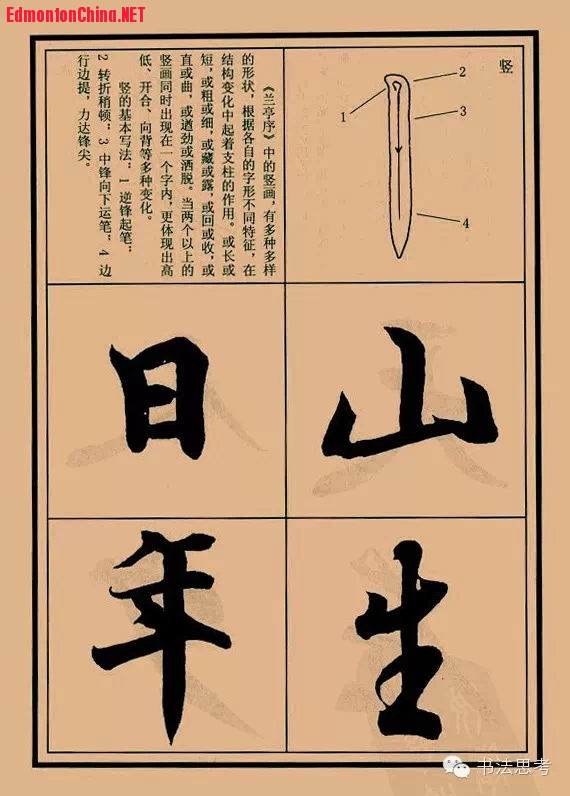 EdmontonChina.NET
竖
1
2
3
4
《兰亭序》中的竖画，有多种多样
的形状，根据各自的字形不同特征，在
结构变化中起着支柱的作用。或长或
短，或粗或细，或藏或露，或回或收，或
直或曲，或遒劲或洒脱。当两个以上的
竖画同时出现在一个字内，更体现出高
低、开合、向背等多种变化。
竖的基本写法：1 逆锋起笔；
2 转折稍顿；3 中锋向下运笔；4 边
行边提，力达锋尖。
山
日
生
年
书法思考